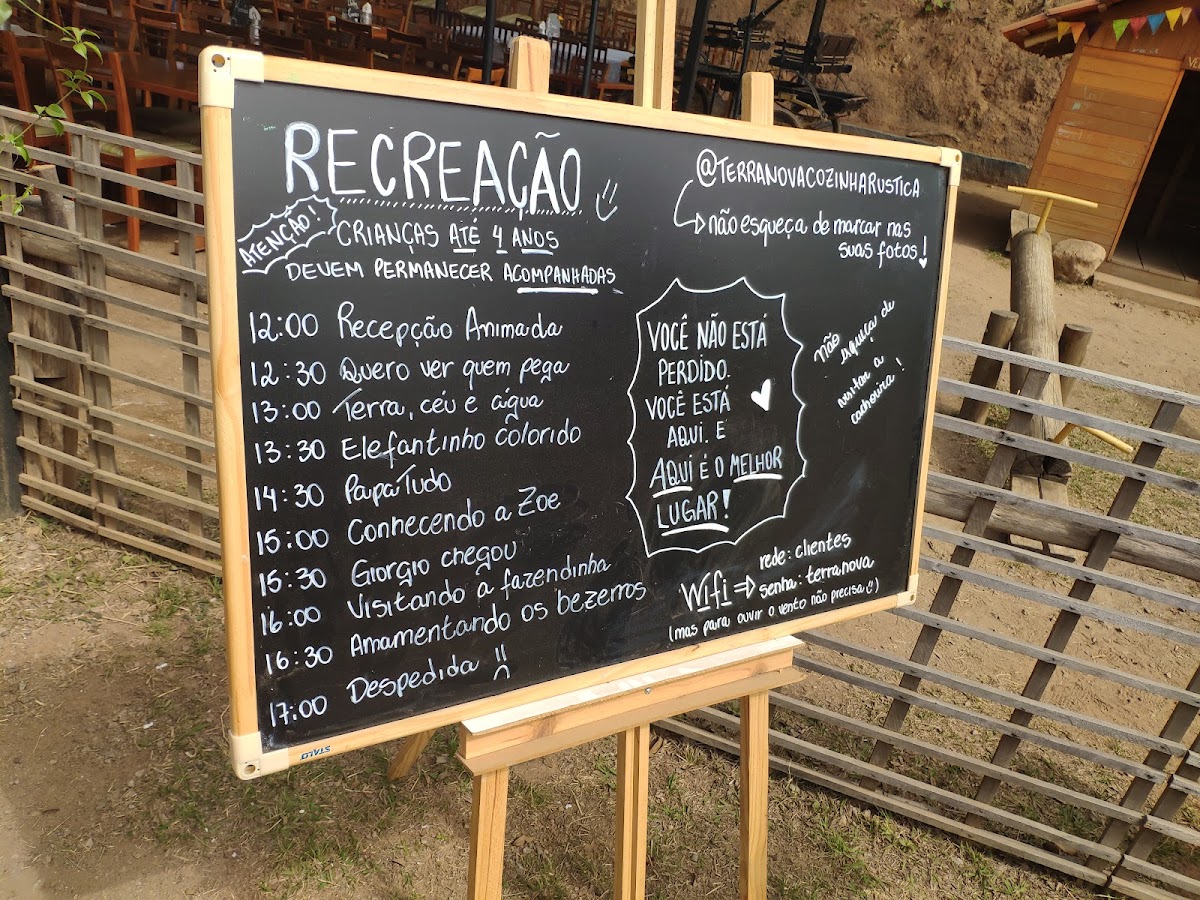 RECREAÇÃO
ATENÇÃO!
CRIANÇAS ATÉ 4 ANOS
DEVEM PERMANECER ACOMPANHADAS
12:00 Recepção Animada
12:30 Quero ver quem pega
13:00 Terra, céu e água
13:30 Elefantinho colorido
14:30 PapaTudo
15:00 Conhecendo a Zoe
15:30 Giorgio chegou
16:00 Visitando a fazendinha
16:30 Amamentando os bezerros
17:00 Despedida
@TERRANOVACOZINHARUSTICA
não esqueça de marcar nas
suas fotos!
VOCÊ NÃO ESTÁ
PERDIDO.
VOCÊ ESTÁ
AQUI. E
AQUI É O MELHOR
LUGAR!
não
esqueça de
visitar a
cachoeira!
Wifi ⇒ rede: clientes
senha: terranova
(mas para ouvir o vento não precisa :))
STALO